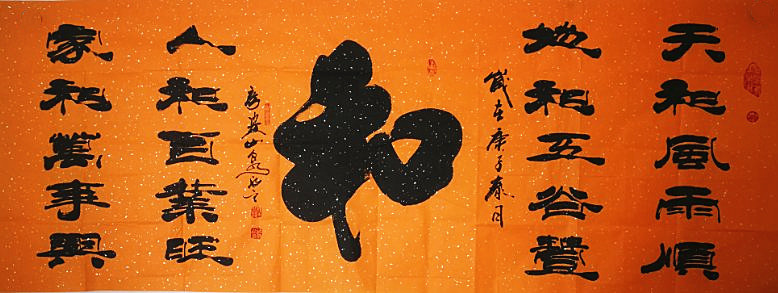 天和風雨順
地和五谷豐
歲在庚子春月
和
人和百業旺
家和萬事興